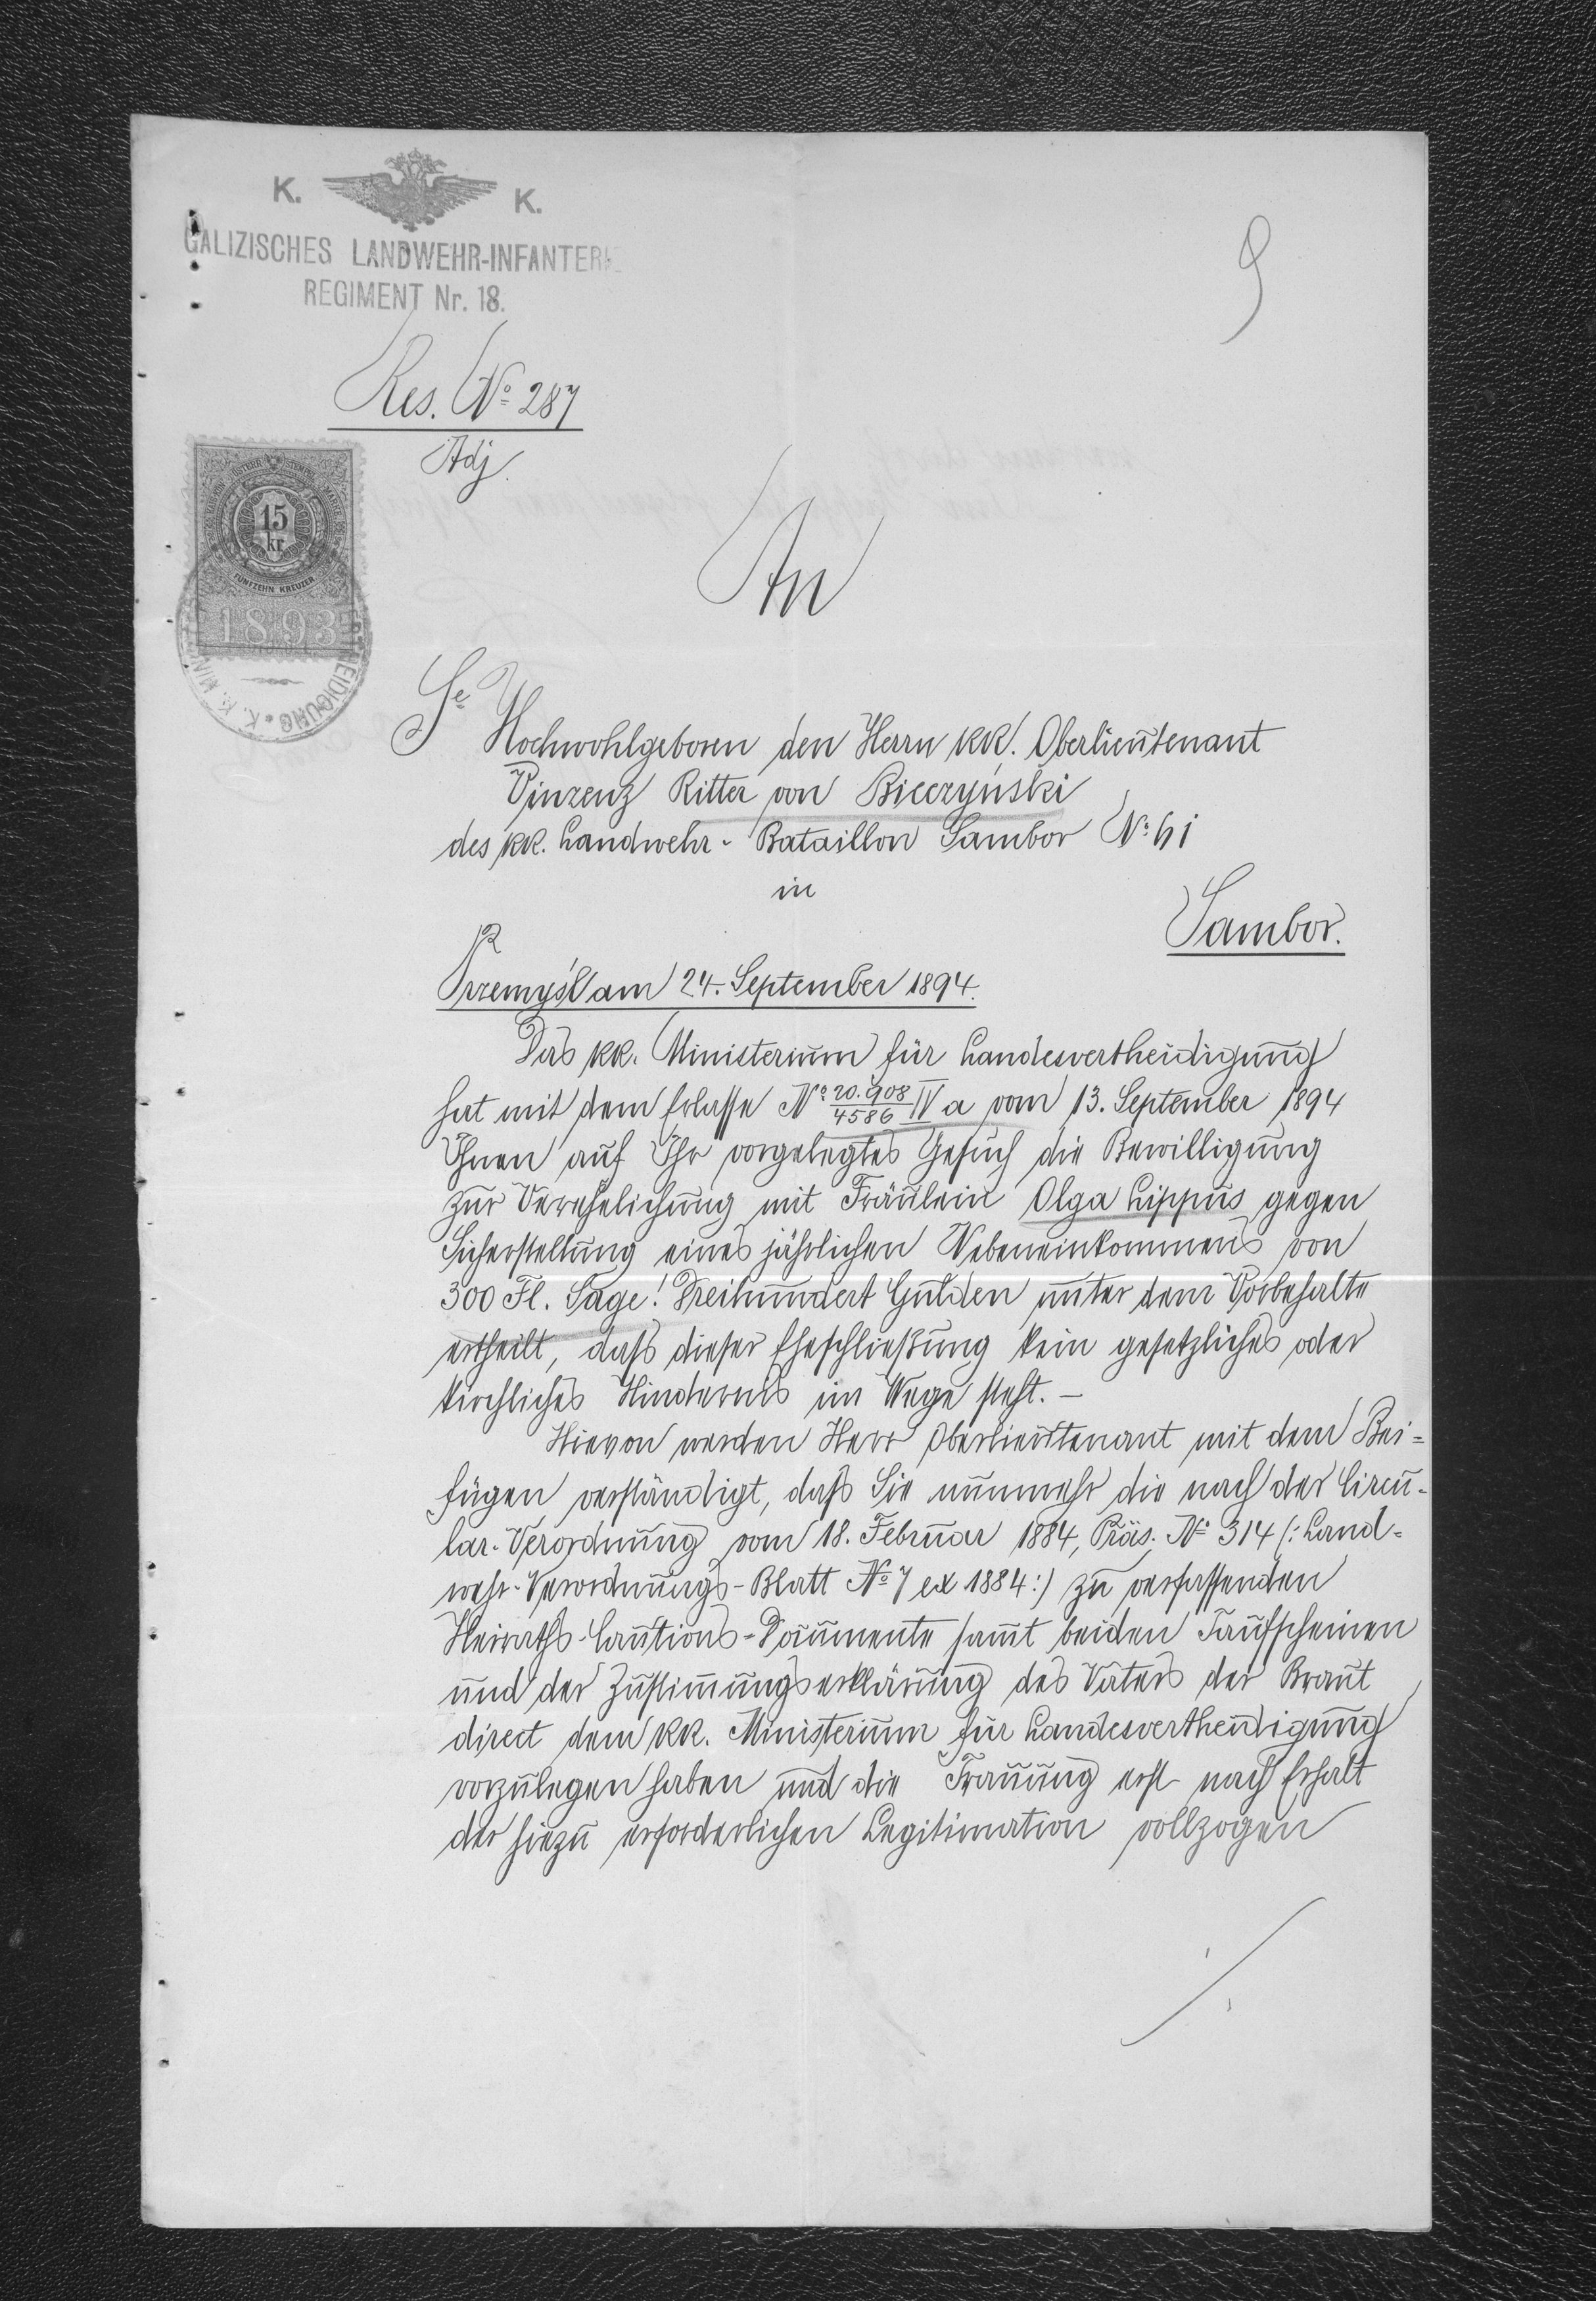 K. K.
GALIZISCHES LANDWEHR-INFANTERIE
REGIMENT Nr. 18.
9
Res. No 287
Adj.
ÖSTERR. STEMPEL
15
kr.
FÜNFZEHN KREUZER
1893
An
Se
Hochwohlgeboren den Herrn kk. Oberlieutenant
Vinzenz Ritter von Bieczyński
des kk. Landwehr-Bataillon Sambor No 61
in
Sambor.
Przemyśl am 24. September 1894.
Das kk. Ministerium für Landesvertheidigung
hat mit dem Erlasse No 20.908/4586 IV a vom 13. September 1894
Ihnen auf Ihr vorgelegtes Gesuch die Bewilligung
zur Verehelichung mit Fräulein Olga Lippus gegen
Sicherstellung eines jährlichen Nebeneinkommens von
300 Fl. Sage! Dreihundert Gulden unter dem Vorbehalte
ertheilt, daß dieser Eheschließung kein gesetzliches oder
kirchliches Hindernis im Wege steht. –
Hievon werden Herr Oberlieutenant mit dem Bei=
fügen verständigt, daß Sie nunmehr die nach der Circu-
lar-Verordnung vom 18. Februar 1884, Präs. No 314 (: Land=
wehr-Verordnungs-Blatt No 7 ex 1884 :) zu verfassenden
Heiraths-Cautions-Documente sammt beiden Taufscheinen
und der Zustimmungserklärung des Vaters der Braut
direct dem kk. Ministerium für Landesvertheidigung
vorzulegen haben und die Trauung erst nach Erhalt
der hiezu erforderlichen Legitimation vollzogen
./.